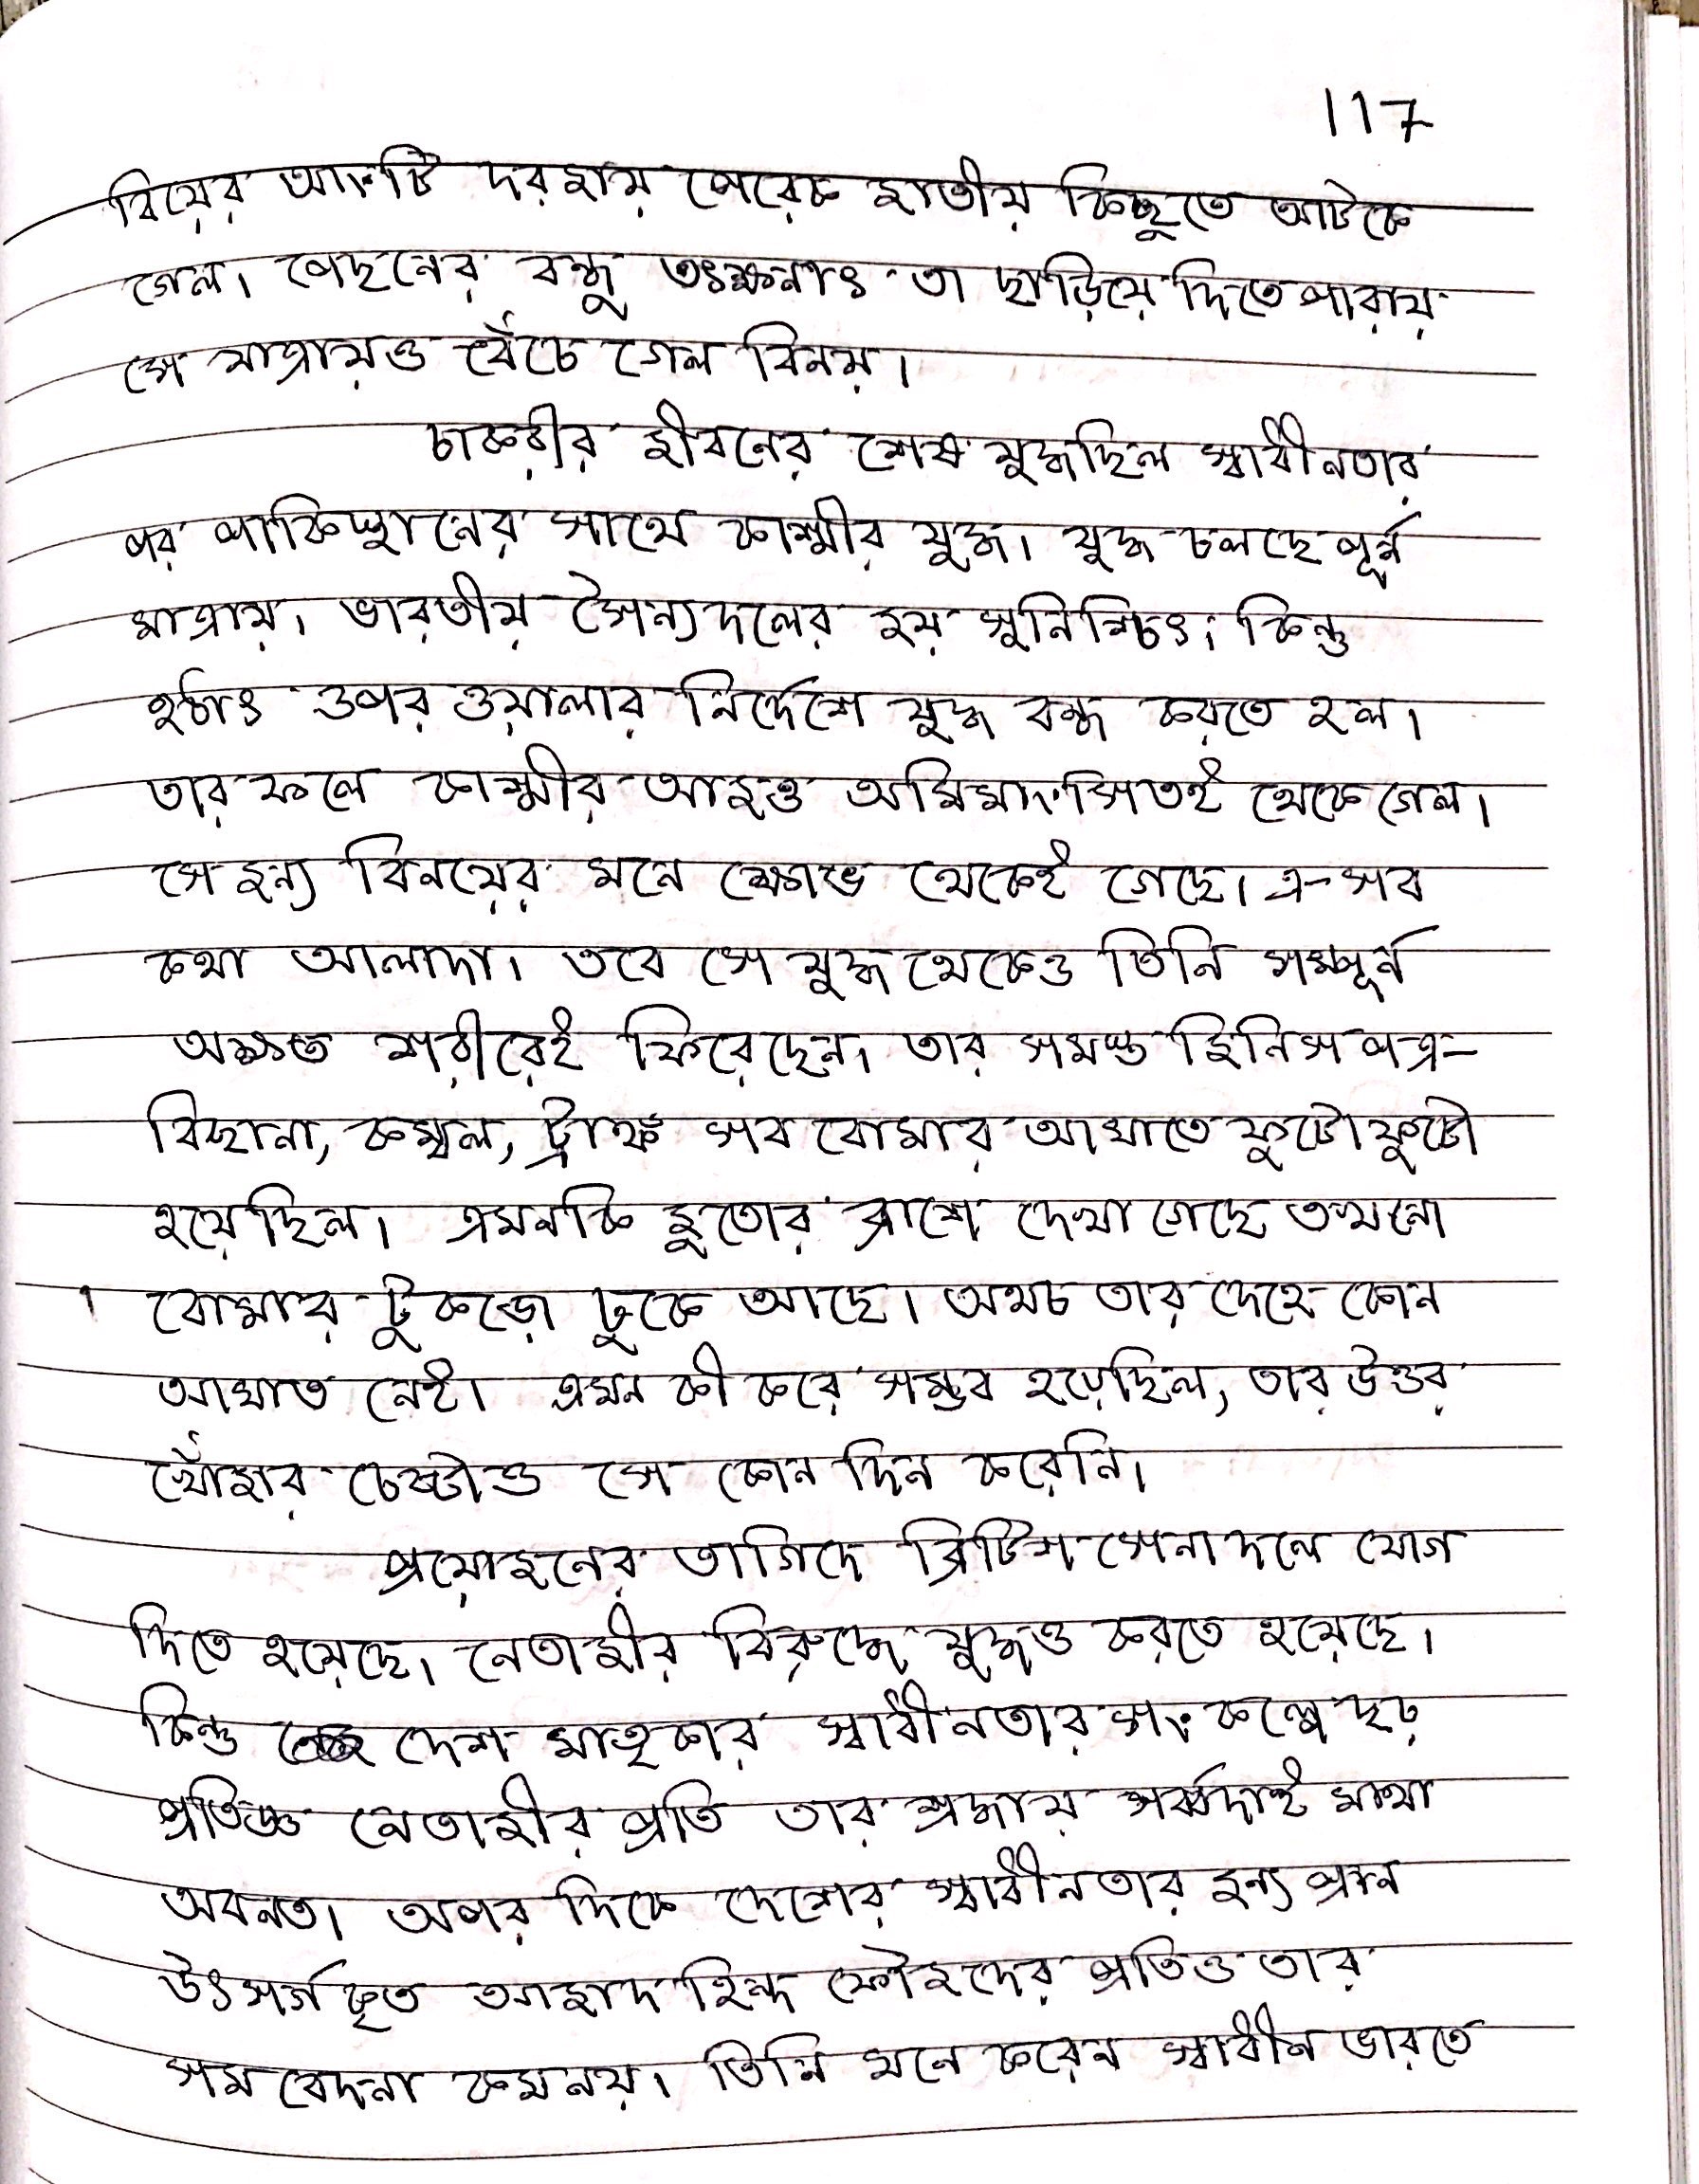 117
বিয়ের আংটি দরজায় পেরেক জাতীয় কিছুতে আটকে
গেল। পেছনের বন্ধু তৎক্ষনাৎ তা ছাড়িয়ে দিতে পারায়
সে যাত্রায়ও বেঁচে গেল বিনয়।
চাকরীর জীবনের শেষ যুদ্ধছিল স্বাধীনতার
পর পাকিস্থানের সাথে কাশ্মীর যুদ্ধ। যুদ্ধ চলছে পূর্ন
মাত্রায়। ভারতীয় সৈন্যদলের জয় সুনিশ্চিৎ। কিন্তু
হঠাৎ ওপর ওয়ালার নির্দেশে যুদ্ধ বন্ধ করতে হল।
তার ফলে কাশ্মীর আজও অমিমাংসিতই থেকে গেল।
সে জন্য বিনয়ের মনে ক্ষোভ থেকেই গেছে। এ-সব
কথা আলাদা। তবে সে যুদ্ধ থেকেও তিনি সম্পূর্ন
অক্ষত শরীরেই ফিরেছেন। তার সমস্ত জিনিস পত্র-
বিছানা, কম্বল, ট্রাঙ্ক সব বোমার আঘাতে ফুটো ফুটো
হয়েছিল। এমনকি জুতোর ব্রাশে দেখা গেছে তখনো
বোমার টুকরো ঢুকে আছে। অথচ তার দেহে কোন
আঘাত নেই। এমন কী করে সম্ভব হয়েছিল, তার উত্তর
খোঁজার চেষ্টাও সে কোন দিন করেনি।
প্রয়োজনের তাগিদে ব্রিটিশ সেনা দলে যোগ
দিতে হয়েছে। নেতাজীর বিরুদ্ধে যুদ্ধও করতে হয়েছে।
কিন্তু দেশ মাতৃকার স্বাধীনতার সংকল্পে দৃঢ়
প্রতিজ্ঞ নেতাজীর প্রতি তার শ্রদ্ধায় সর্ব্বদাই মাথা
অবনত। অপর দিকে দেশের স্বাধীনতার জন্য প্রান
উৎসর্গ কৃত আজাদ হিন্দ ফৌজদের প্রতিও তার
সমবেদনা কম নয়। তিনি মনে করেন স্বাধীন ভারতে